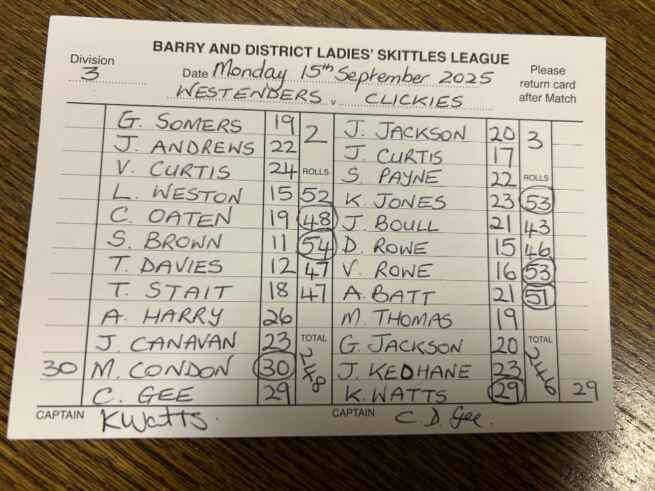 BARRY AND DISTRICT LADIES' SKITTLES LEAGUE
Division 3 Date Monday 15th September 2025 Please return card after Match
WESTENDERS v CLICKIES
G. SOMERS 19 2 J. JACKSON 20 3
J. ANDREWS 22 J. CURTIS 17
V. CURTIS 24 ROLLS S. PAYNE 22 ROLLS
L. WESTON 15 52 K. JONES 23 53
C. OATEN 19 48 J. BOULL 21 43
S. BROWN 11 54 D. ROWE 15 46
T. DAVIES 12 47 V. ROWE 16 53
T. STAIT 18 47 A. BATT 21 51
A. HARRY 26 M. THOMAS 19
J. CANAVAN 23 TOTAL G. JACKSON 20 TOTAL
30 M. CONDON 30 248 J. KEOHANE 23 246
C. GEE 29 K. WATTS 29 29
CAPTAIN KWatts. CAPTAIN C. D. Gee.